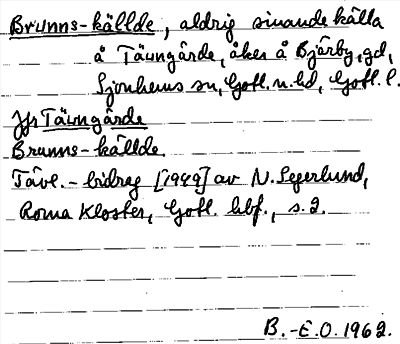 Brunns-källde, aldrig sinande källa
å Täungårde, åker å Bjärby, gd,
Sjonhems sn, Gotl. n. hd, Gotl. l.
Jfr Täungårde
Brunns-källde.
Tävl.-bidrag [1949] av N. Segerlund,
Roma Kloster, Gotl. hbf., s. 2.
B.-E.O. 1962.